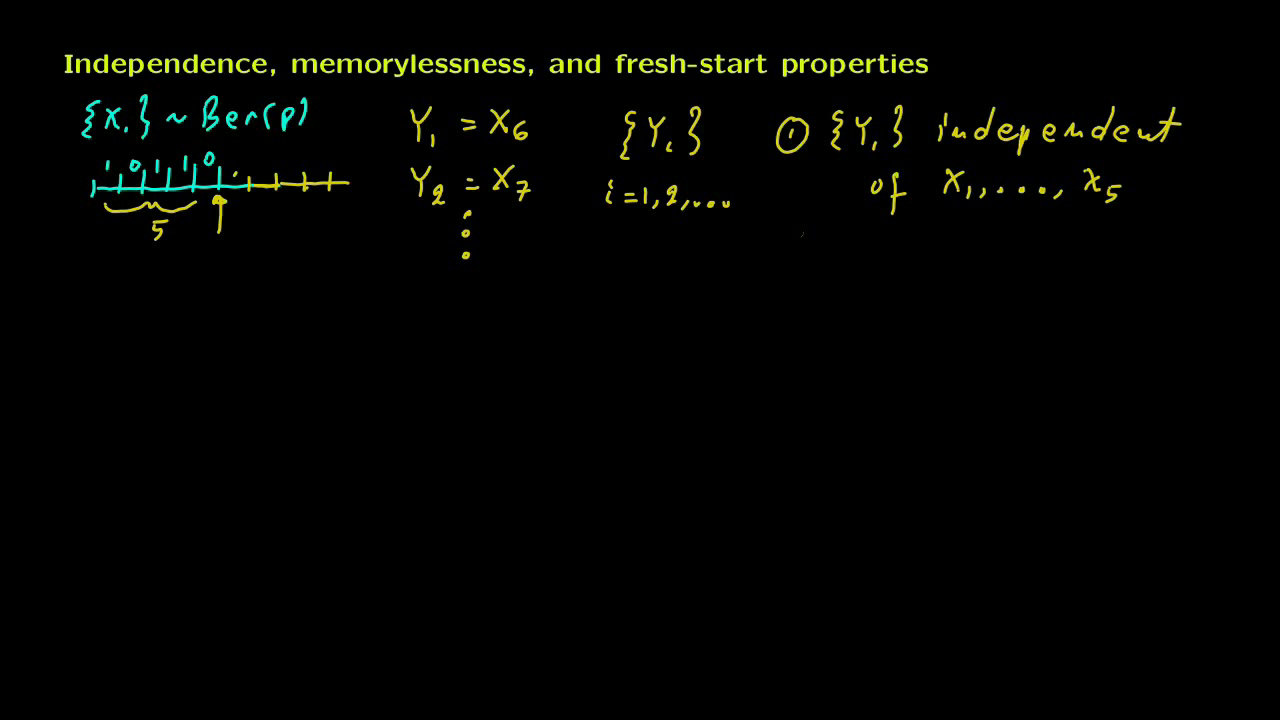 Independence, memorylessness, and fresh-start properties
{Xᵢ} ~ Ber(p)
1 0 1 1 0
5
Y₁ = X₆
Y₂ = X₇
{Yᵢ}
i = 1, 2, ...
① {Yᵢ} independent
of X₁, ..., X₅